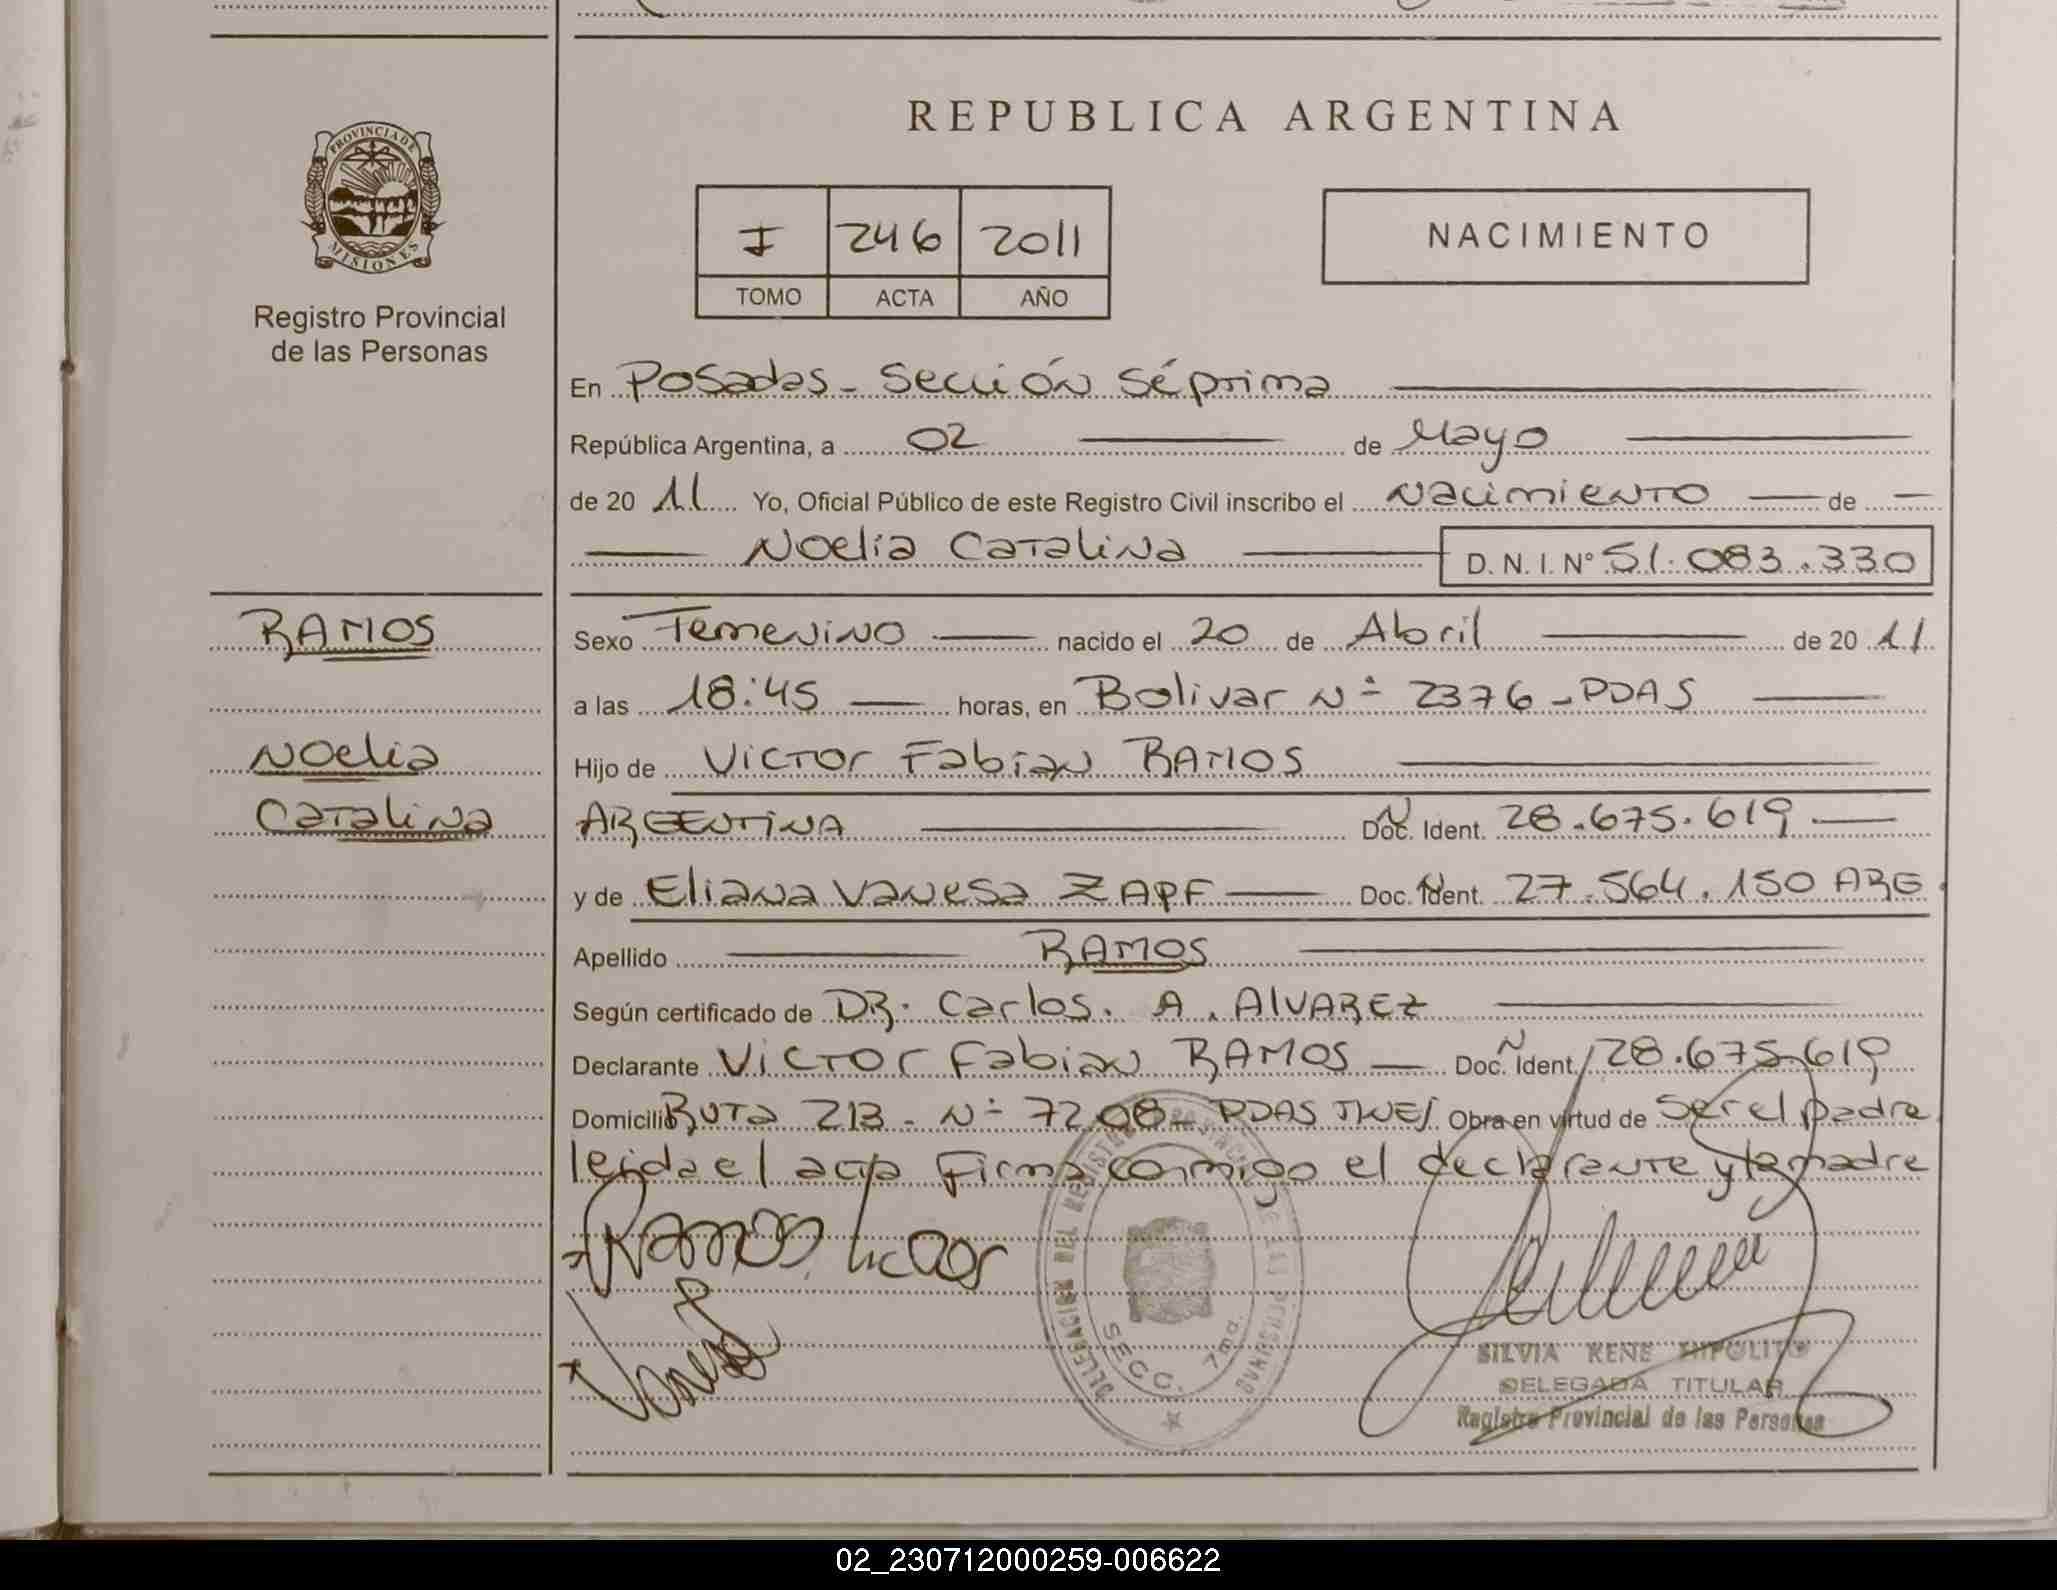 REPUBLICA ARGENTINA
PROVINCIA DE MISIONES
Registro Provincial
de las Personas
I 246 2011
TOMO ACTA AÑO
NACIMIENTO
En Posadas - Sección Séptima
República Argentina, a 02 de Mayo
de 20 11 Yo, Oficial Público de este Registro Civil inscribo el Nacimiento de
Noelia Catalina D. N. I. Nº 51.083.330
RAMOS
Noelia
Catalina
Sexo Femenino nacido el 20 de Abril de 20 11
a las 18:45 horas, en Bolivar Nº 2376 - PDAS
Hijo de Victor Fabian RAMOS
ARGENTINA Doc. Ident. 28.675.619
y de Eliana Vanesa ZAPF Doc. Ident. 27.564.150 ARG
Apellido RAMOS
Según certificado de DR. Carlos. A. ALVAREZ
Declarante Victor Fabian RAMOS Doc. Ident. 28.675.619
Domicilio Ruta 213 - Nº 7208 PDAS Obra en virtud de ser el padre
leida el acta firma conmigo el declarante y la madre
RAMOS Victor
Vanesa
DELEGACION DEL REGISTRO DE LAS PERSONAS
SECC. 7ma.
SILVIA RENE HIPOLITO
DELEGADA TITULAR
Registro Provincial de las Personas
02_230712000259-006622